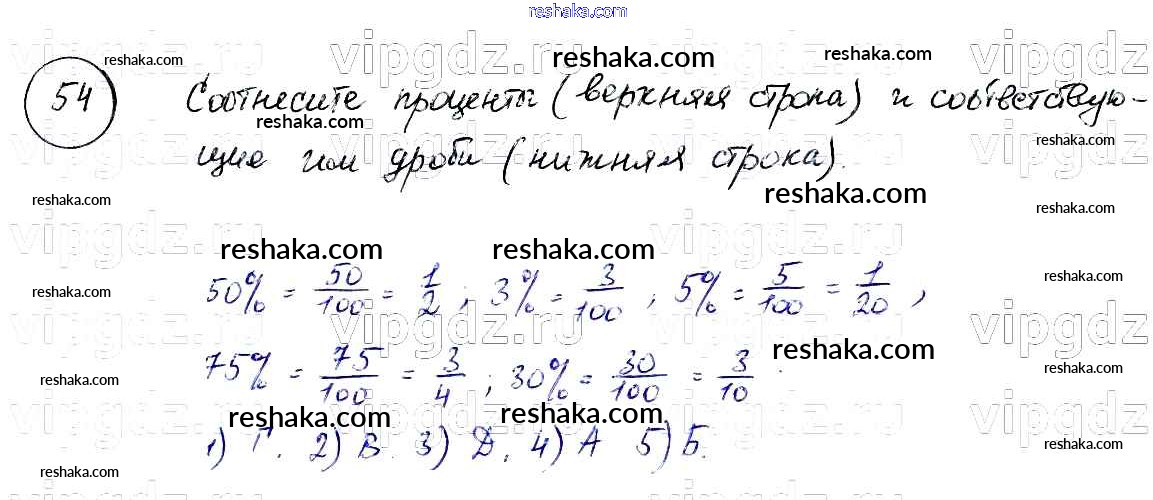 reshaka.com
vipgdz.ru vipgdz.ru vipgdz.ru vipgdz
reshaka.com reshaka.com reshaka.com
54 Соотнесите проценты (верхняя строка) и соответствую-
reshaka.com reshaka.com
щие им дроби (нижняя строка).
reshaka.com reshaka.com reshaka.com
vipgdz.ru vipgdz.ru vipgdz.ru vipgdz
reshaka.com reshaka.com
50% = 50/100 = 1/2 ; 3% = 3/100 ; 5% = 5/100 = 1/20 ,
reshaka.com reshaka.com
vipgdz.ru vipgdz.ru vipgdz.ru vipgdz
75% = 75/100 = 3/4 ; 30% = 30/100 = 3/10
reshaka.com reshaka.com reshaka.com
reshaka.com reshaka.com
vipgdz.ru vipgdz.ru vipgdz.ru vipgdz
1) Г. 2) В. 3) Д. 4) А 5) Б.
reshaka.com reshaka.com reshaka.com